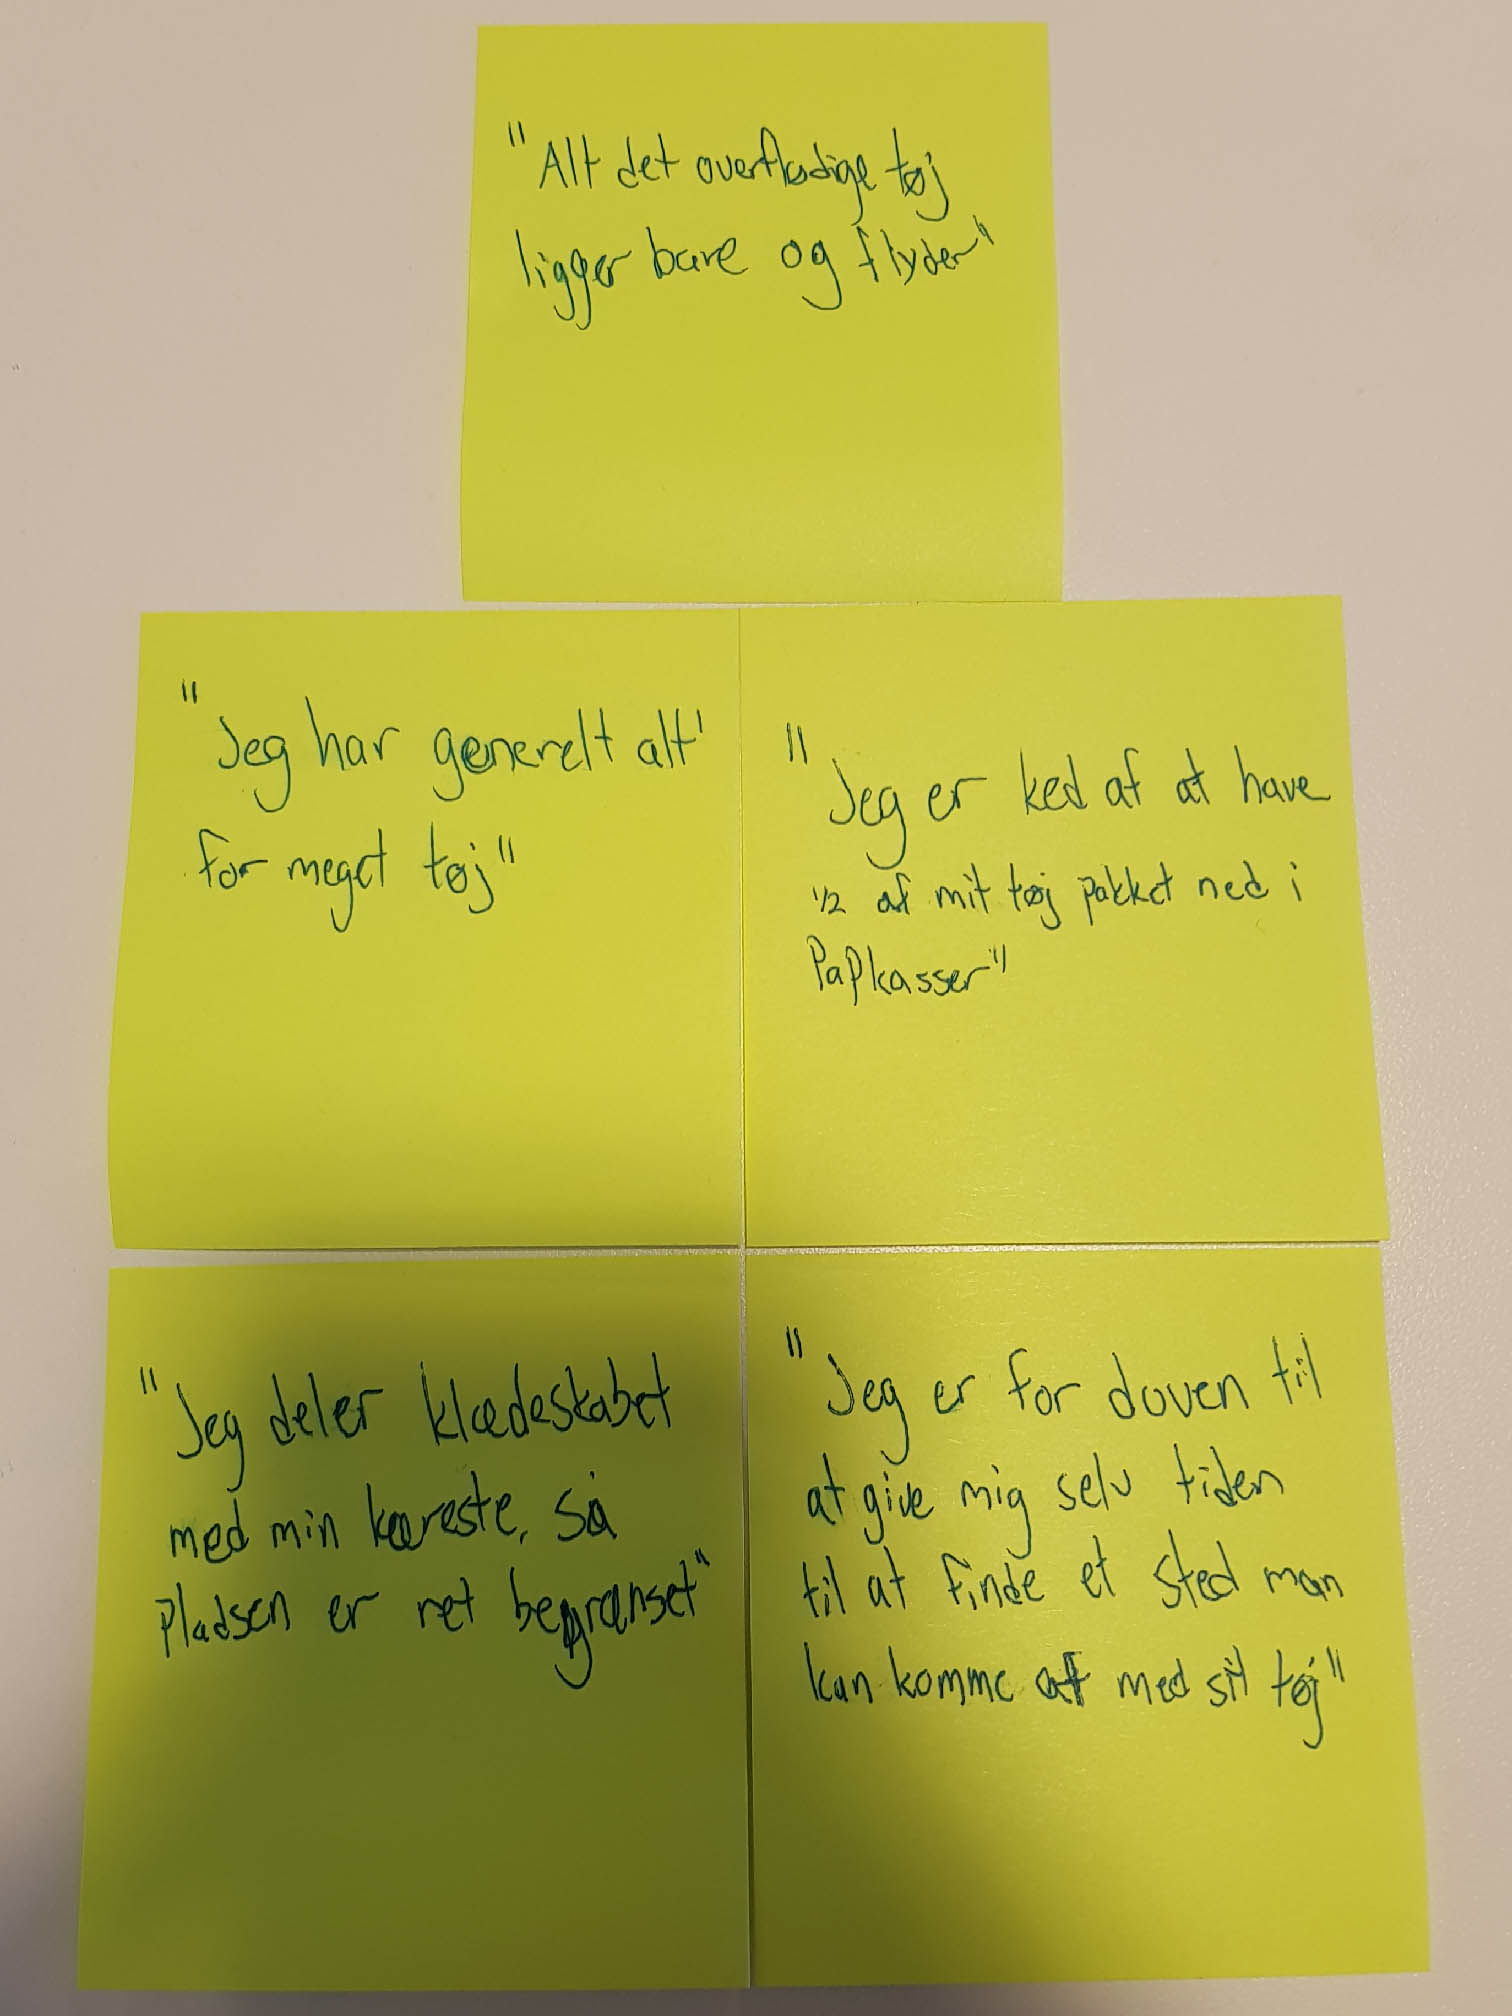 "Alt det overflødige tøj
ligger bare og flyder"
"Jeg har generelt alt
for meget tøj"
"Jeg er ked af at have
1/2 af mit tøj pakket ned i
Papkasser"
"Jeg deler klædeskabet
med min kæreste, så
pladsen er ret begrænset"
"Jeg er for doven til
at give mig selv tiden
til at finde et sted man
kan komme af med sit tøj"